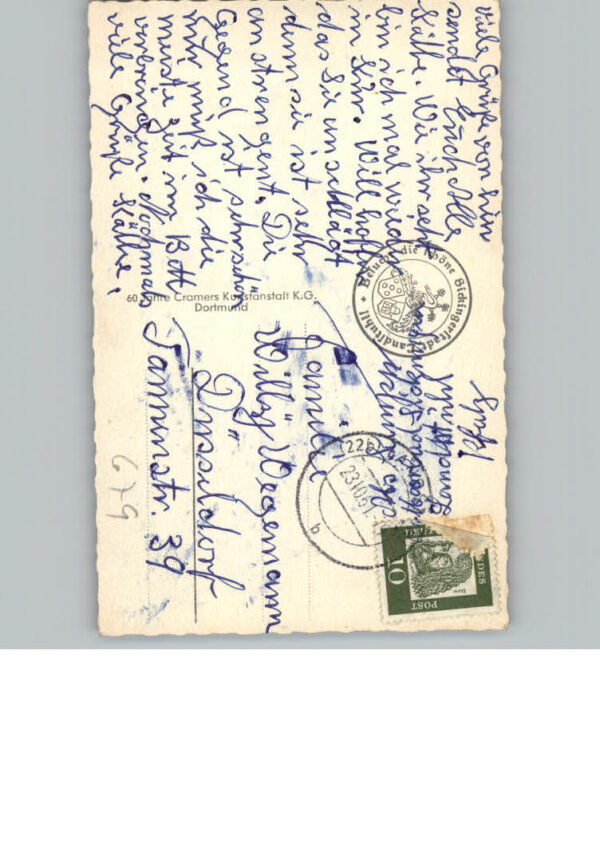 Viele Grüße von hier
sendet Euch Alle
Käthe. Wie ihr seht
bin ich mal wieder
in Kur. Will hoffen
das sie anschlägt
denn sie ist sehr
anstrengent. Die
Gegend ist sehr schön
nur muß ich die
meiste Zeit im Bett
verbringen. Nochmals
viele Grüße Käthe.
60 Jahre Cramers Kunstanstalt K.G.
Dortmund
Besucht die Sickingerstadt Landstuhl
(22b) LANDSTUHL
23.10.61
b
DEUTSCHE BUNDESPOST
10
Familie
Willy Wegemann
Düsseldorf
Taunusstr. 39
679